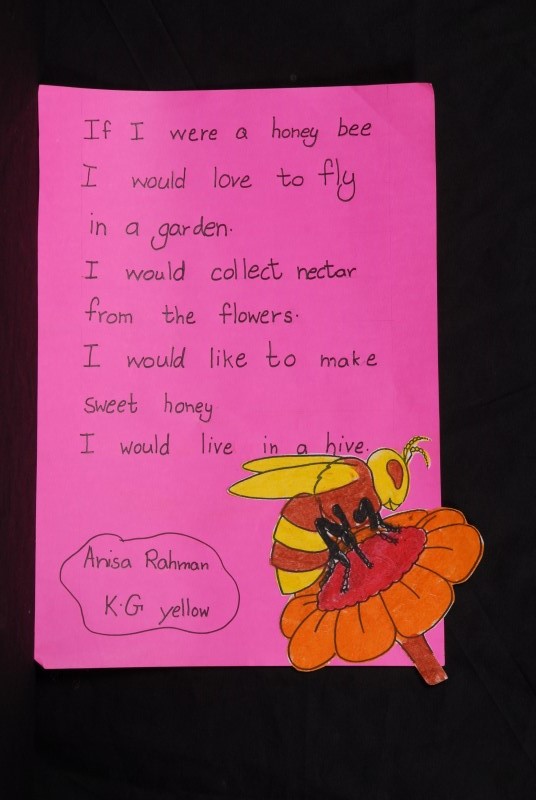 If I were a honey bee
I would love to fly
in a garden.
I would collect nectar
from the flowers.
I would like to make
sweet honey
I would live in a hive.
Anisa Rahman
K.G yellow